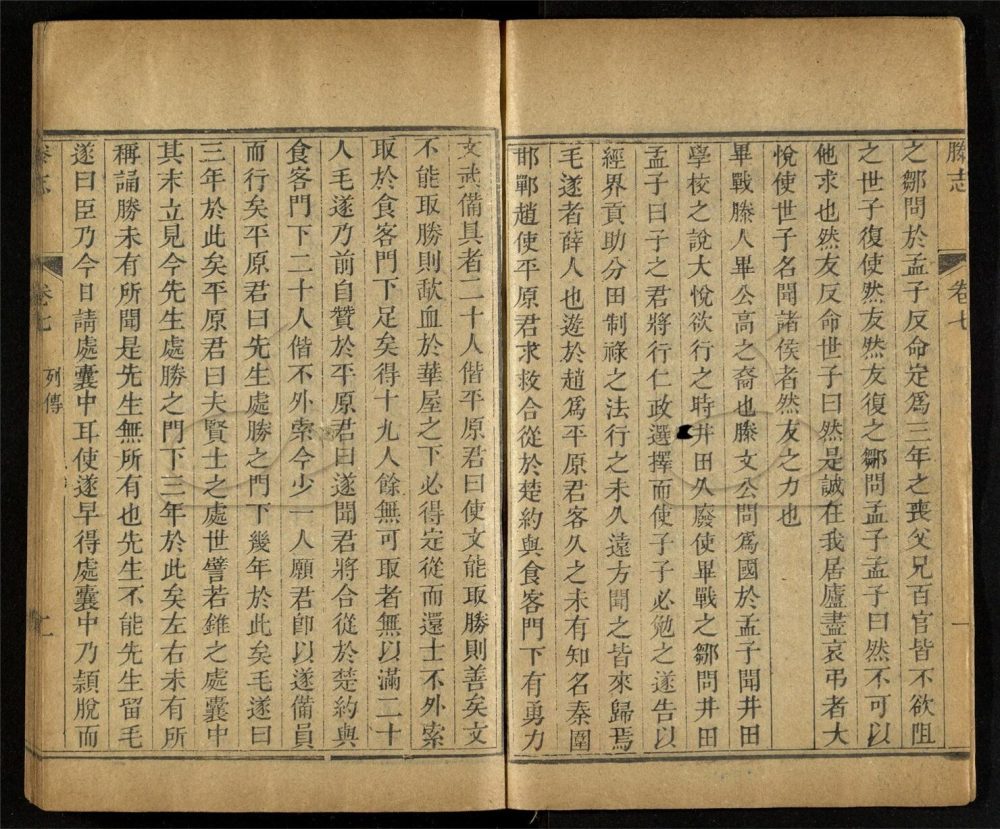 滕志
卷七
一
之鄒問於孟子反命定爲三年之喪父兄百官皆不欲阻
之世子復使然友然友復之鄒問孟子孟子曰然不可以
他求也然友反命世子曰然是誠在我居廬盡哀弔者大
悅使世子名聞諸侯者然友之力也
畢戰滕人畢公高之裔也滕文公問爲國於孟子聞井田
學校之說大悅欲行之時井田久廢使畢戰之鄒問井田
孟子曰子之君將行仁政選擇而使子子必勉之遂告以
經界貢助分田制祿之法行之未久遠方聞之皆來歸焉
毛遂者薛人也遊於趙爲平原君客久之未有知名秦圍
邯鄲趙使平原君求救合從於楚約與食客門下有勇力
文武備具者二十人偕平原君曰使文能取勝則善矣文
不能取勝則歃血於華屋之下必得定從而還士不外索
取於食客門下足矣得十九人餘無可取者無以滿二十
人毛遂乃前自贊於平原君曰遂聞君將合從於楚約與
食客門下二十人偕不外索今少一人願君卽以遂備員
而行矣平原君曰先生處勝之門下幾年於此矣毛遂曰
三年於此矣平原君曰夫賢士之處世譬若錐之處囊中
其末立見今先生處勝之門下三年於此矣左右未有所
稱誦勝未有所聞是先生無所有也先生不能先生留毛
遂曰臣乃今日請處囊中耳使遂早得處囊中乃穎脫而
卷七
列傳